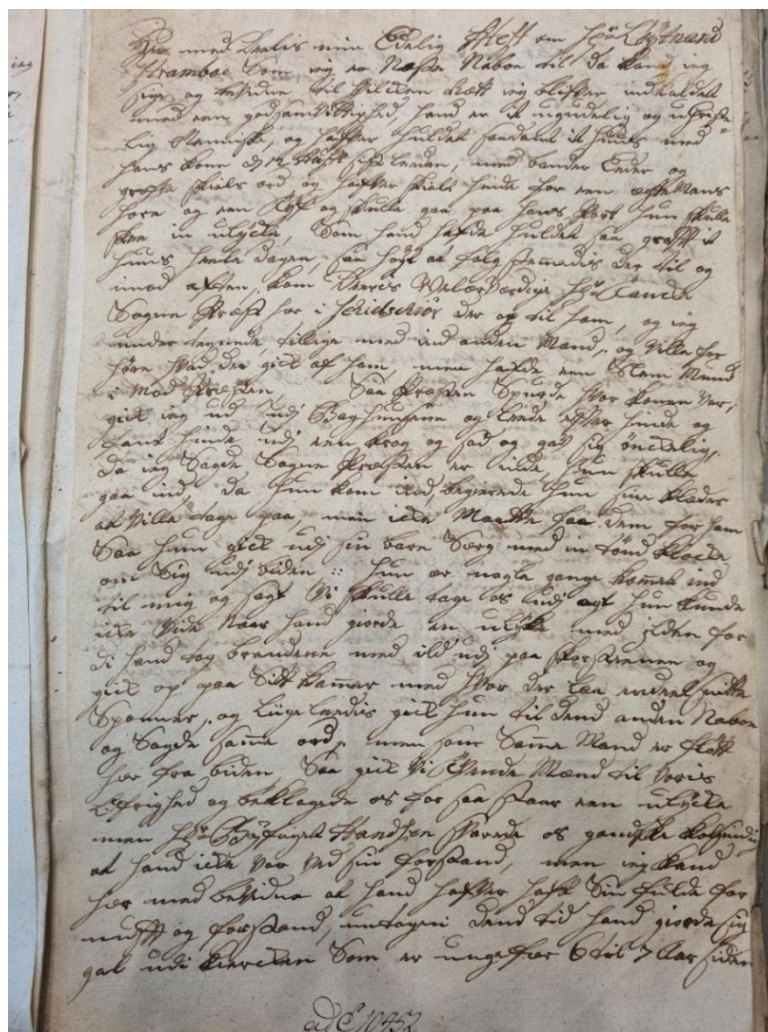 Her med Deelis min Edelig Attest om Hr: Løytnand
Stramboe Som ieg er Neste Naboe til da kand ieg
sige og tvidne til Viliden hætt ieg blifver indkaldet
med een god samvittighed, hand er it ugudelig og uChriste-
lig Menniske, og hafver huldet saadant it huus med
hans kone i 12 Aars tid leeden, med bander Eeder og
grofste skiels ord og hafver skielt hinde for een ægte Mans
hore og een og skulle gaa paa hans Port hun skulle
skee in ulycke, Som hand hafde huldet saa groft it
huus heele dagen, saa høyt at folk stemmedis der til og
imod aften, kom Voeris Velærværdige Hr:
Sogne Præst her i Schidschiør der op til ham, og ieg
under tegnede tillige med ind anden Mand, og Ville for
høre hvad der gick af ham, men hafde een Slem Mund
i Mod Præsten, Saa Præsten Spurde hvor konen var,
gick ieg ud udj Baghuusene og leede efter hinde og
fant hinde udj een krog og sad og gav sig ønckelig,
da ieg Sagde Sogne Præsten er inde, hun skulle
gaa ind, da hun kom ind, begierede hun sine klæder
at Ville tage paa, men icke Maatte faa dem for ham
Saa hun gick udj sin bare Særg med in tønd klocke
om Sig udj Siden :: hun er nogle gange kommet ind
til mig og sagt Vi skulle tage os udj agt hun kunde
icke Vide naar hand giorde en ulycke med ilden for
di hand tog brandene med ild udj paa Skorsteenen og
gick op paa Sitt kammer med hvor der laa endeel
Spaaner, og liigeleedis gick hun til dend anden Naboe
og Sagde samme ord, men som Samme Mand er fløtt
her fra biden Saa gick Vi Mænd til Voris
Øfrighed og beklagede os for saa staar een ulycke
men Hr: Byefoget Handsen Svarede os gandske
at hand icke var Ved sin forstand, men ieg kand
her med bevidne at hand hafver haft Sin fulde for
nuft og forstand, untagen dend tid hand giorde sig
gal udi kiercken Som er ungefær 6 til 7 Aar siden
ad E 10452